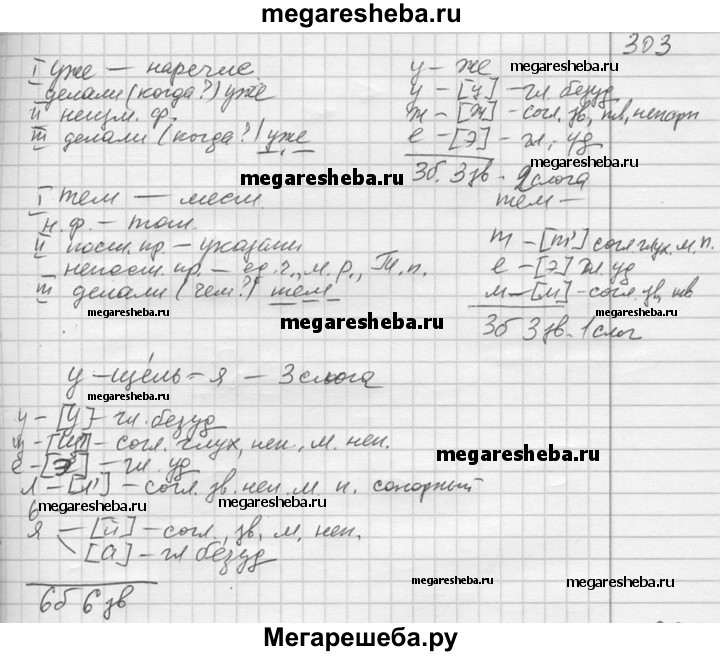 megaresheba.ru
303
I уже — наречие.
делали (когда?) уже
II неизм. ф.
III делали (когда?) уже
у – же
у – [у] – гл. безуд
ж – [ж] – согл, зв, тв, непарн
е – [э] – гл, уд
3б. 3зв – 2 слога
megaresheba.ru
I тем — мест.
н.ф. – том.
II пост. пр – указат
непост. пр. – ед.ч., м.р., Т.п.
III делали (чем?) тем
тем —
т – [т'] согл глух. м. п.
е – [э] гл уд
м – [м] – согл. зв, тв
3б 3 зв. 1 слог
megaresheba.ru
у – щель = я – 3 слога
у – [у] – гл. безуд
щ – [щ'] – согл. глух, неп., м. неп.
е – [э] – гл. уд
л – [л'] – согл. зв. неп. м. п. сонорный
ь
я — [й] – согл, зв, м, неп.
[а] – гл безуд
6б 6 зв
megaresheba.ru
Мегарешеба.ру